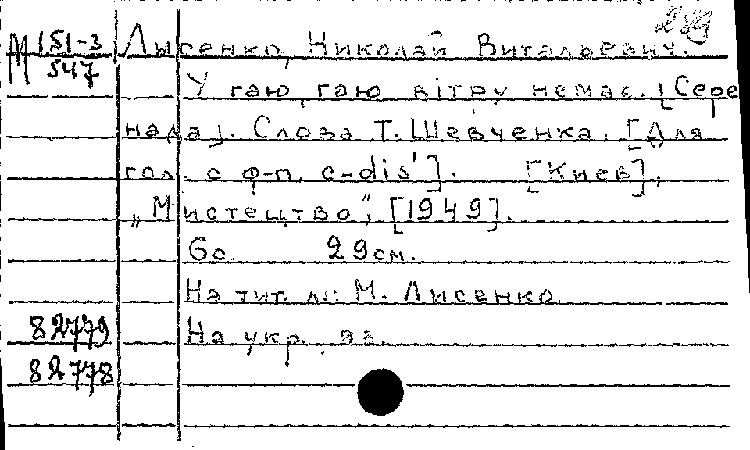 М 151-3
547
Лысенко, Николай Витальевич.
У гаю, гаю вітру немає. [Сере
нада]. Слова Т. Шевченка. [Для
гол. с ф-п. c-dis']. [Киев],
„Мистецтво", [1949].
6с 29см.
На тит. л.: М. Лисенко
На укр. яз.
82779
82778